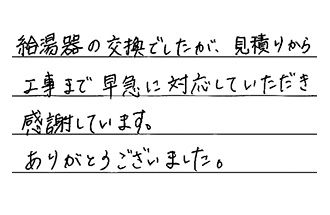 給湯器の交換でしたが、見積りから
工事まで早急に対応していただき
感謝しています。
ありがとうございました。